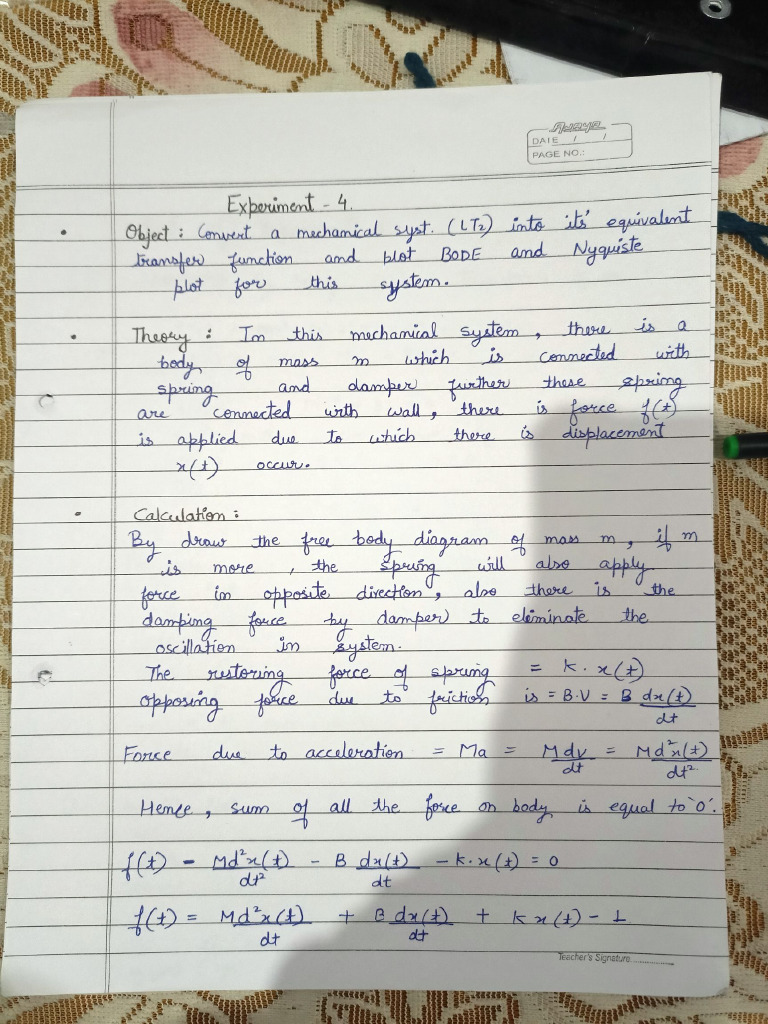 DATE / /
PAGE NO.:
Experiment - 4.
Object : Convert a mechanical syst. (LTI) into its' equivalent
transfer function and plot BODE and Nyquiste
plot for this system.
Theory : In this mechanical system, there is a
body of mass m which is connected with
spring and damper further these spring
are connected with wall, there is force f(t)
is applied due to which there is displacement
x(t) occur.
Calculation :
By draw the free body diagram of mass m, if m
is more, the spring will also apply
force in opposite direction, also there is the
damping force by damper) to eliminate the
oscillation in system.
The restoring force of spring = K. x(t)
opposing force due to friction is = B.V = B dx(t)/dt
Force due to acceleration = Ma = Mdv/dt = Md²x(t)/dt²
Hence, sum of all the force on body is equal to '0'.
f(t) - Md²x(t)/dt² - B dx(t)/dt - K.x(t) = 0
f(t) = Md²x(t)/dt + B dx(t)/dt + K x(t) - 1
Teacher's Signature..............